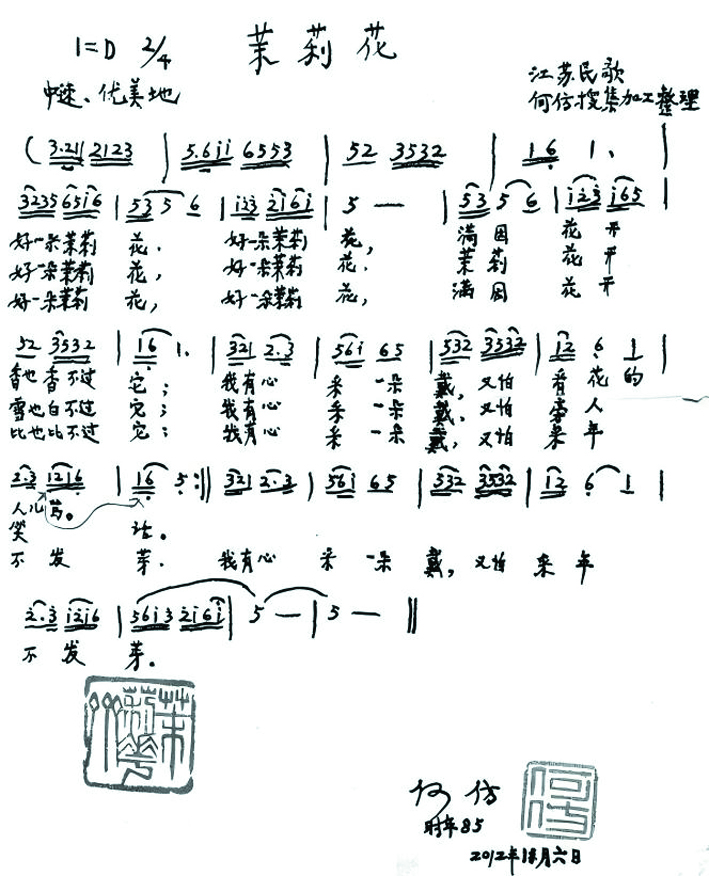 1=D 2/4 茉莉花
中速、优美地
江苏民歌
何仿搜集加工整理
( 3.211 2123 | 5.6ii 6553 | 52 3532 | 16 1. |
3235 65i6 | 53 5 6 | i23 2i6i | 5 — | 53 5 6 | i23 i65 |
好一朵茉莉 花, 好一朵茉莉 花, 满园 花开
好一朵茉莉 花, 好一朵茉莉 花, 茉莉 花开
好一朵茉莉 花, 好一朵茉莉 花, 满园 花开
52 3532 | 16 1. | 321 2.3 | 56i 65 | 532 3532 | 12 6 1 |
香也香不过 它; 我有心 采一朵 戴, 又怕 看花的
雪也白不过 它; 我有心 采一朵 戴, 又怕 旁人
比也比不过 它; 我有心 采一朵 戴, 又怕 来年
2.3 1216 | 16 5 :|| 321 2.3 | 56i 65 | 332 3532 | 12 6 1 |
人儿骂。
笑 话。
不发 芽. 我有心 采一朵 戴, 又怕 来年
2.3 i2i6 | 56i3 2i6i | 5 — | 5 — ||
不发 芽。
何仿
时年85
何仿